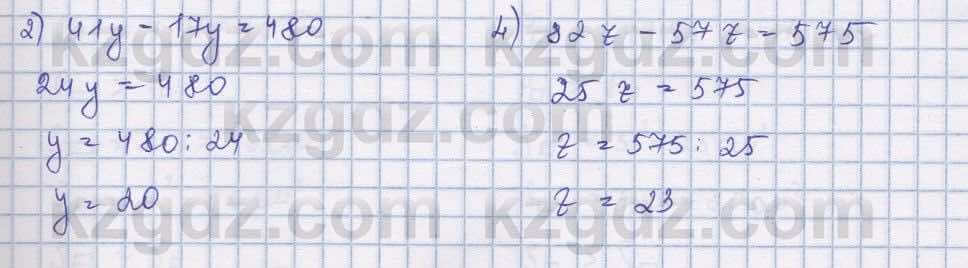 2) 41y - 17y = 480
24y = 480
y = 480 : 24
y = 20
4) 82z - 57z = 575
25z = 575
z = 575 : 25
z = 23
kzgdz.com
kzgdz.com
kzgdz.com